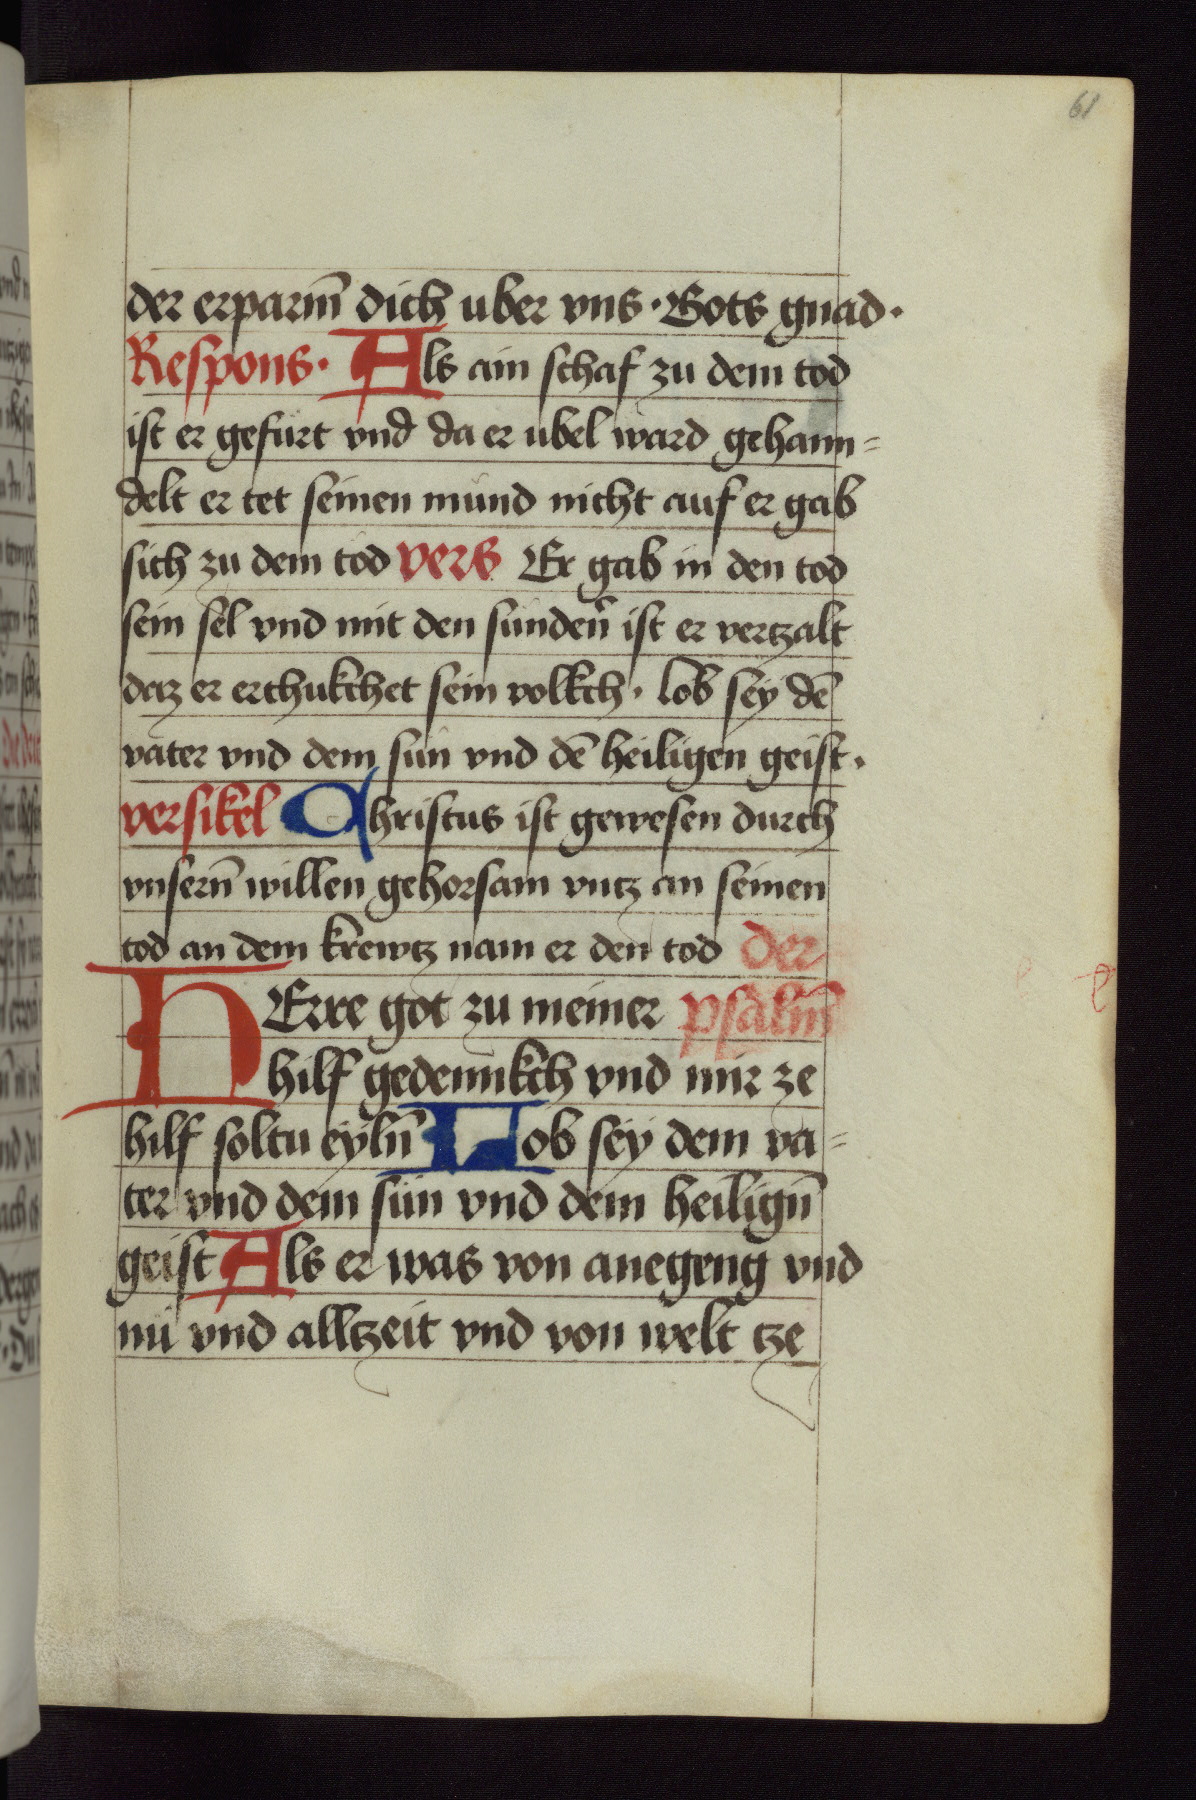 61
der erparm̄ dich uber vns · Gots gnad ·
Respons · Als ain schaf zu dem tod
ist er gefürt vnd da er ubel ward gehann=
delt er tet seinen mund nicht auf er gab
sich zu dem tod vers Er gab in den tod
sein sel vnd mit den sünden̄ ist er vertzalt
daz er erchukchet sein volkch · lob sey dē
vater vnd dem sun vnd dē heiligen geist ·
versikel Christus ist gewesen durch
vnsern̄ willen gehorsam vntz an seinen
tod an dem krewtz nam er den tod der
HErre got zu meiner psalm̄
hilf gedennkch vnd mir ze
hilf soltu eyln̄ Lob sey dem va=
ter vnd dem sün vnd dem heilign̄
geist Als er was von anegeng vnd
nü vnd alltzeit vnd von welt tze